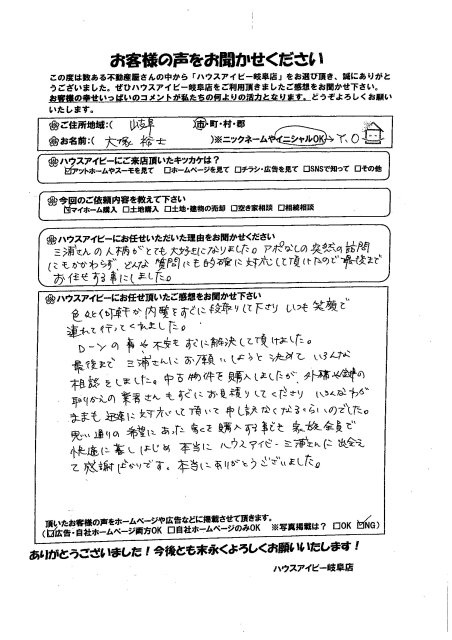 お客様の声をお聞かせください
この度は数ある不動産屋さんの中から「ハウスアイビー岐阜店」をお選び頂き、誠にありがと
うございました。ぜひハウスアイビー岐阜店をご利用頂きましたご感想をお聞かせ下さい。
お客様の幸せいっぱいのコメントが私たちの何よりの活力となります。どうぞよろしくお願い
いたします。
ご住所地域:( 岐阜 )市・町・村・郡
お名前:( 大塚 裕士 )※ニックネームやイニシャルOK→ Y.O
ハウスアイビーにご来店頂いたキッカケは?
☑アットホームやスーモを見て □ホームページを見て □チラシ・広告を見て □SNSで知って □その他
今回のご依頼内容を教えて下さい
☑マイホーム購入 □土地購入 □土地・建物の売却 □空き家相談 □相続相談
ハウスアイビーにお任せいただいた理由をお聞かせください
三浦さんの人柄がとても大好きになりました。アポなしの突然の訪問
にもかかわらず、どんな質問にも的確に対応して頂けたので最後まで
お任せする事にしました。
ハウスアイビーにお任せ頂いたご感想をお聞かせ下さい
色々な物件か内覧をすぐに段取りして下さり いつも笑顔で
連れて行ってくれました。
ローンの事や不安もすぐに解決して頂けました。
最後まで 三浦さんにお願いしようと決めて いろんな
相談をしました。中古物件を購入しましたが、外構や
取りかえの業者さんもすぐにお見積りしてくださり いろんなわが
ままも 迅速に対応して頂いて 申し訳なくなるくらいのでした。
思い通りの希望にあった 家を購入する事も 家族全員で
快適に暮しはじめ 本当に ハウスアイビー 三浦さんに出会え
て 感謝ばかりです。本当にありがとうございました。
頂いたお客様の声をホームページや広告などに掲載させて頂きます。
(☑広告・自社ホームページ両方OK □自社ホームページのみOK ※写真掲載は? □OK ☑NG)
ありがとうございました!今後とも末永くよろしくお願いいたします!
ハウスアイビー岐阜店